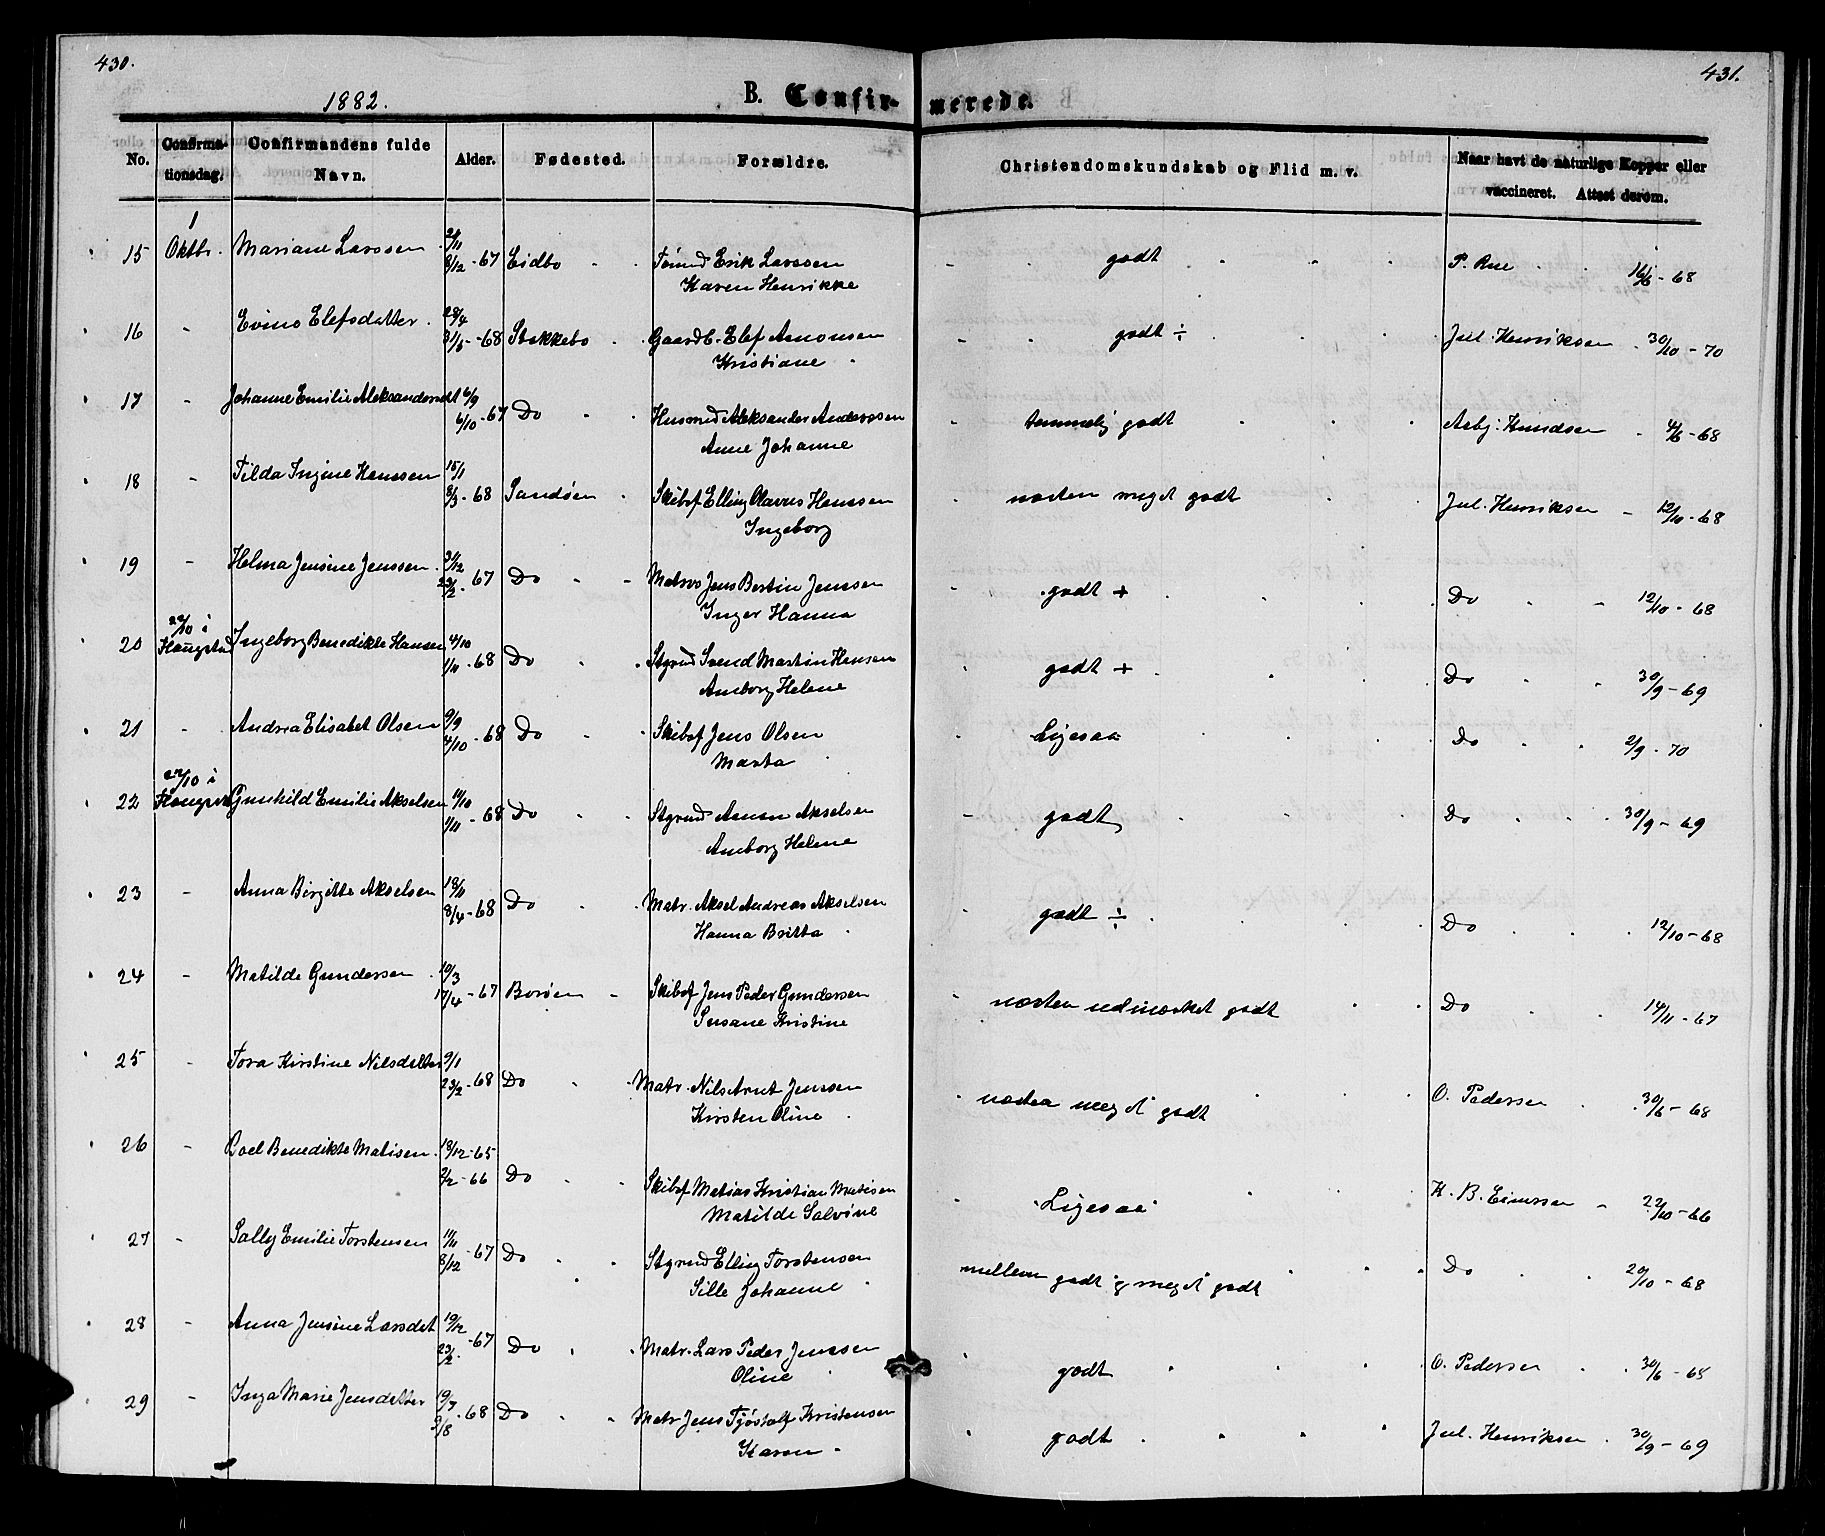 430.
431.
1882.
B. Confir-
merede.
No.
Confirma-
tionsdag.
Confirmandens fulde
Navn.
Alder.
Fødested.
Forældre.
Christendomskundskab og Flid m. v.
Naar havt de naturlige Kopper eller
vaccineret. Attest derom.
1
15 Oktbr. Mariane Larssen 8/12 - 67 Eidbo Erik Larssen godt P. Rue - 68
Karen Henrikke
16 - Evine Elefsdatter 28/4 - 68 Stokkebo Gaardb. Elef Amonsen godt ÷ Jul. Henriksen 30/10 - 70
Kristiane
17 - Johanne Emilie Aleksandersdt 6/9
6/10 - 67 Do Husmd Aleksander Anderssen temmelig godt Asbj. Knudsen 4/6 - 68
Anne Johanne
18 - Tilda Ingine Hanssen 15/1
8/3 - 68 Sandøen Skibsf Elling Olavus Hanssen næsten meget godt Jul. Henriksen - 12/10 - 68
Ingeborg
19 - Helma Jensine Jenssen 31/12
23/2 - 67 Do Matros Jens Bertin Jenssen godt + Do 12/10 - 68
Inger Hanna
20 22/10 i
Ingeborg Benedikte Hansen 4/10
1/11 - 68 Do Stgrmd Svend Martin Hansen godt + Do 30/9 - 69
Amborg Helene
21 - Andrea Elisabet Olsen 9/9
4/10 - 68 Do Skibsf Jens Olsen Ligesaa Do 2/9 - 70
Marta
22 22/10 i
Gunhild Emilie Akselsen 11/10
1/11 - 68 Do Stgrmd Amon Akselsen godt Do 30/9 - 69
Amborg Helene
23 - Anna Birgitte Akselsen 18/11
8/4 - 68 Do Matr. Aksel Andreas Akselsen godt ÷ Do 12/10 - 68
Hanna Britta
24 - Matilde Gundersen 10/3
17/4 - 67 Borøen - Skibsf Jens Peder Gundersen næsten udmærket godt Do 14/11 - 67
Susane Kristine
25 - Tora Kirstine Nilsdatter 9/1
23/2 - 68 Do Matr. Nils Arnt Jenssen næsten meget godt O. Pedersen 30/6 - 68
Kirsten Oline
26 - Boel Benedikte Matisen 18/12 - 65
2/2 - 66 Do Skibsf Matias Kristian Matisen Ligesaa K. B. Einerssen - 22/10 - 66
Matilde Salvine
27 - Sally Emilie Torstensen 11/11
8/12 - 67 Do Stgrmd Elling Torstensen mellem godt og meget godt Do 20/10 - 68
Sille Johanne
28 - Anna Jensine Larsdat 19/12
23/2 - 67 Do Matr. Lars Peder Jenssen godt O. Pedersen 30/6 - 68
Oline
29 - Inga Marie Jensdatter 19/7
9/8 - 68 Do Matr Jens Tjøstolf Kristensen godt Jul. Henriksen 30/9 - 69
Karen